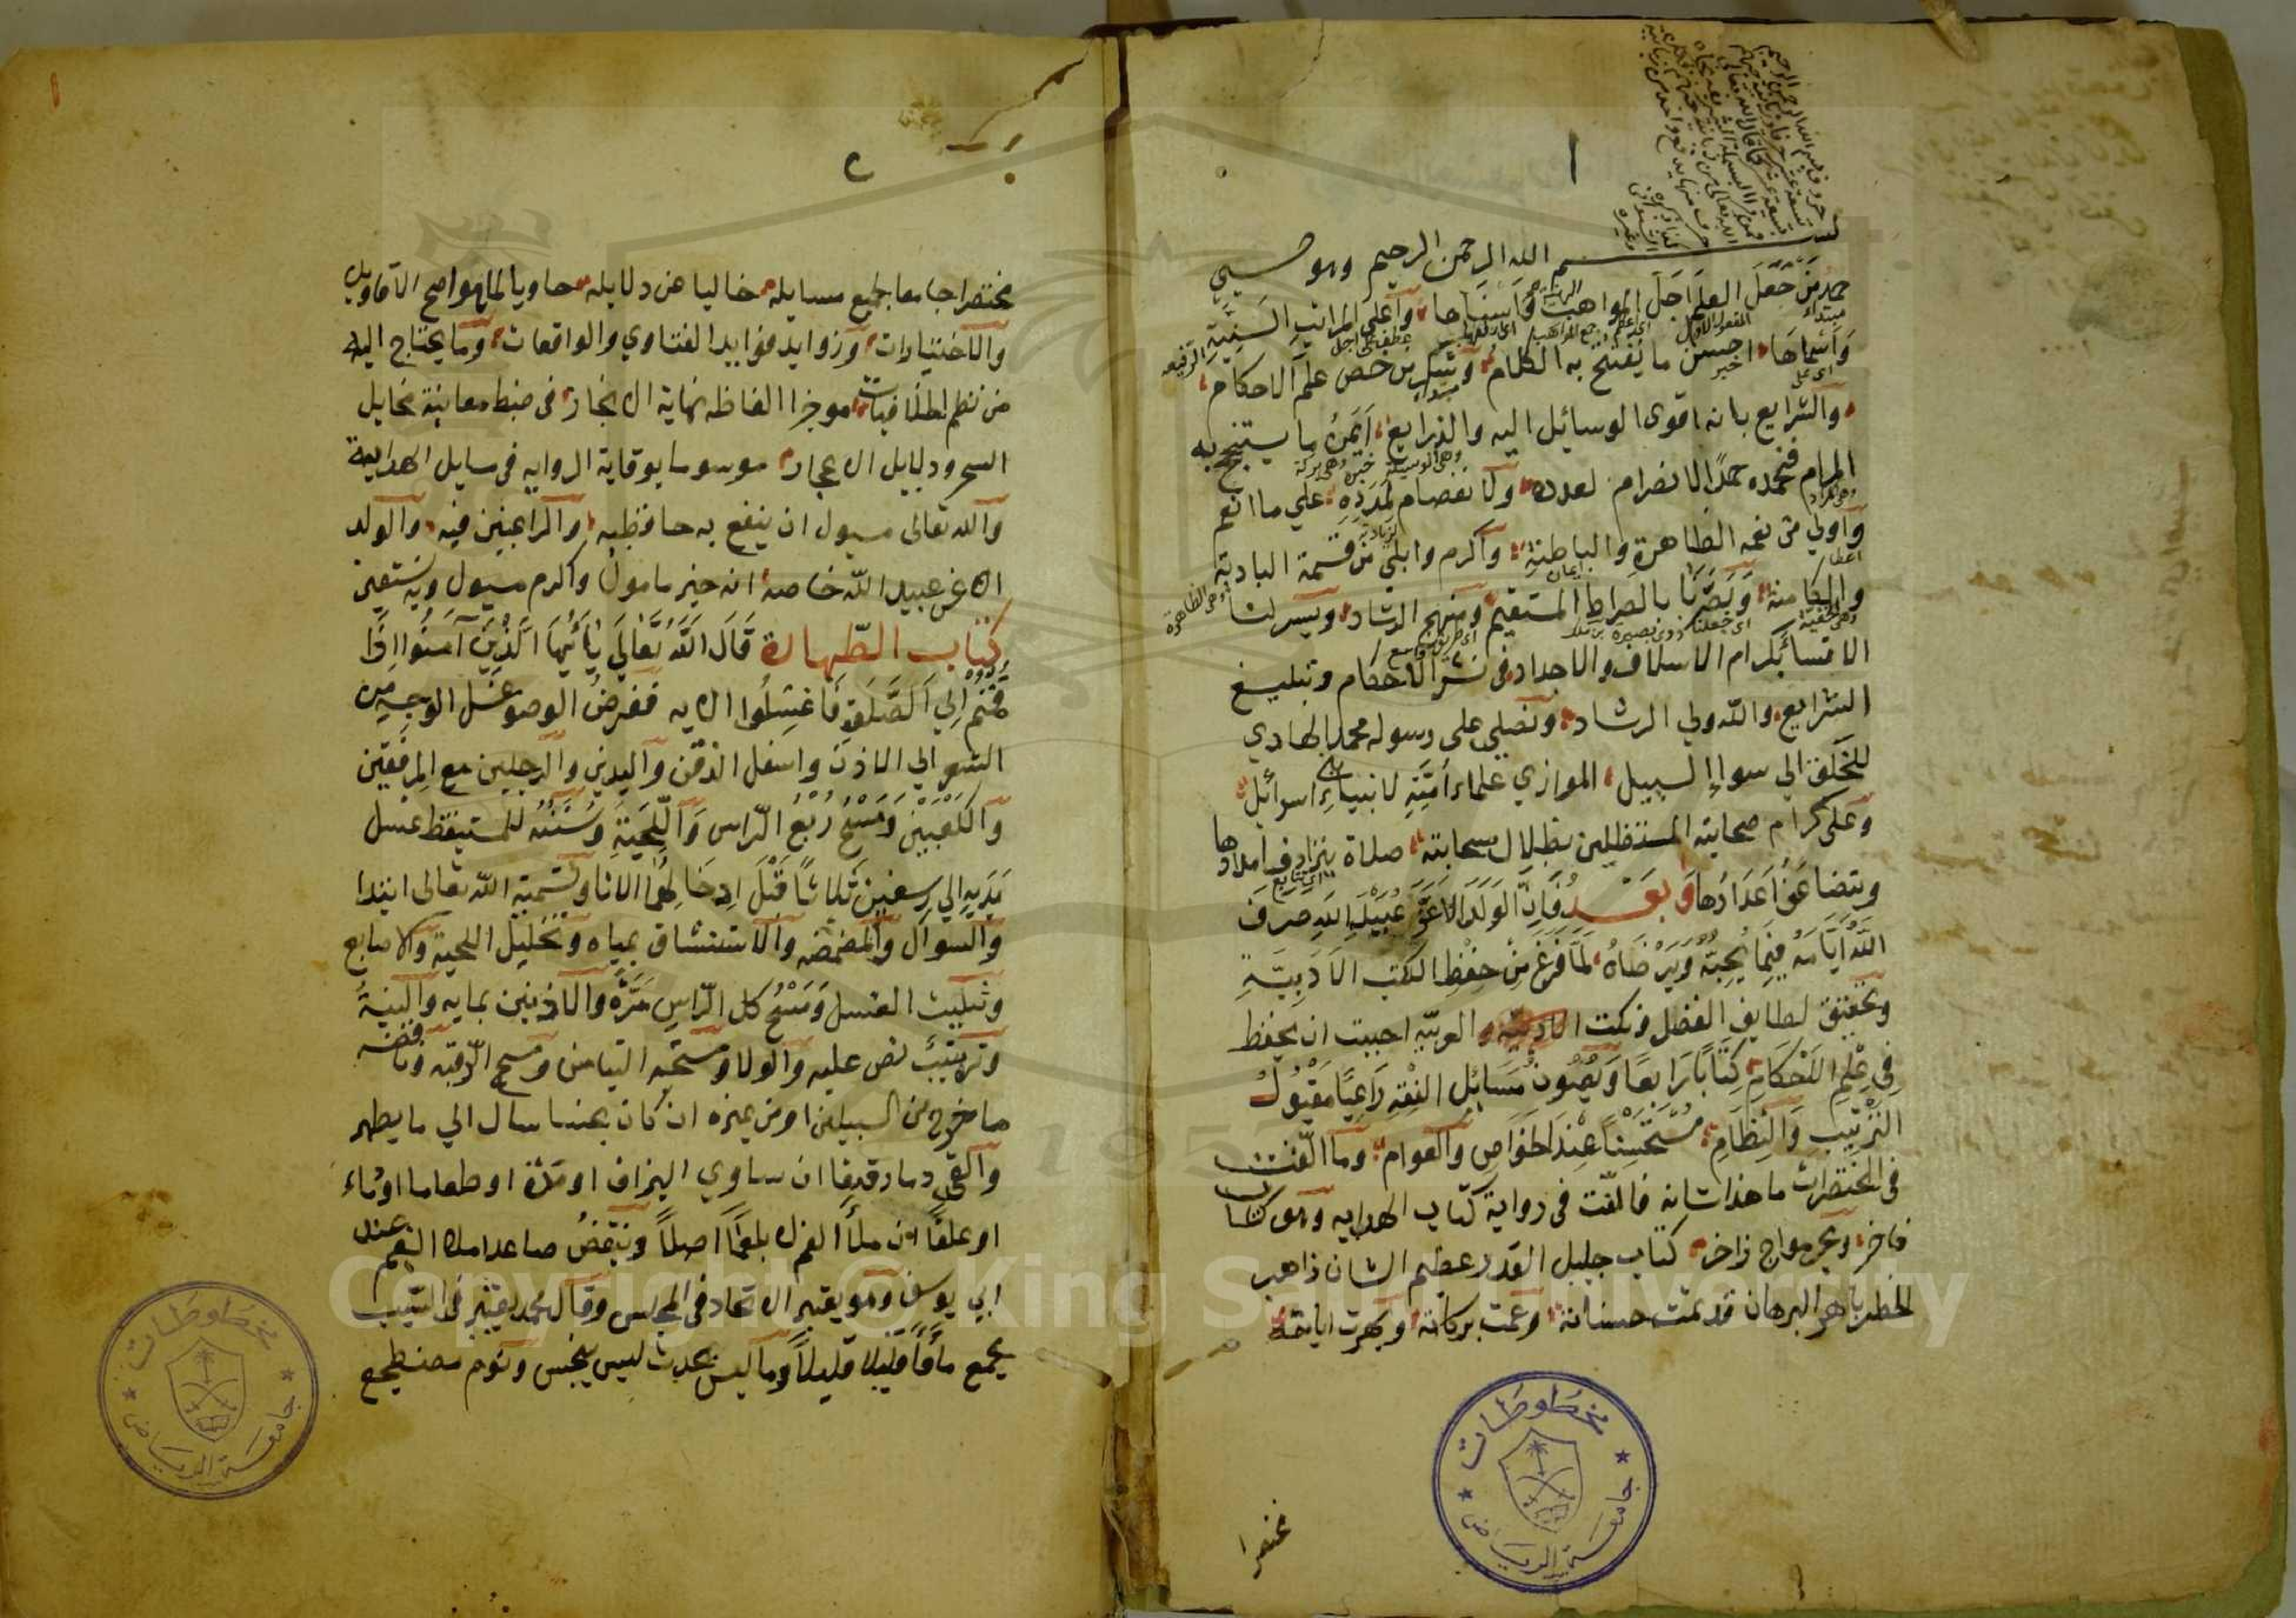 ١
بسم الله الرحمن الرحيم وهو حسبي
حمد من جعل العلم اجل المواهب واسناها وأعلى المراتب السنية
وأسماها احسن ما يفتتح به الكلام وشكر من خص علم الاحكام
والشرايع بانه اقوى الوسائل اليه والذرايع أيمن ما يستنجح به
المرام فنحمده حمدا لا انصرام لعدده ولا انفصام لمدده علي ما انعم
وأولي من نعمه الظاهرة والباطنة وأكرم وابلي من قسمة البادية
والكامنة وبصرنا بالصراط المستقيم ومنهج الرشاد ويسر لنا
الاقتسا بكرام الاسلاف والاجداد في نشر الاحكام وتبليغ
الشرايع والله ولي الرشاد ونصلي على رسوله محمد الهادي
للخلق الي سواإ السبيل الموازي علماء أمته لانبياء بني اسرائيل
وعلى كرام صحابته المستظلين بظلال سحابته صلاة يترادف امدادها
ويتضاعف أعدادها وبعد فإن الولد الاعز عبيد الله صرف
الله أيامه فيما يحبه ويرضاه لما فرغ من حفظ الكتب الادبية
وتحقيق لطايف الفضل ونكت العربيه احببت ان يحفظ
في علم الاحكام كتابا رابعا ولعيون مسائل الفقه راعيا مقبول
الترتيب والنظام مستحسنا عند الخواص والعوام وما الفيت
في المختصرات ما هذا شانه فالفت في رواية كتاب الهدايه وهو كتاب
فاخر وبحر مواج زاخر كتاب جليل القدر عظيم الشان زاهر
الخطر باهر البرهان قد تمت حسناته وعمت بركاته وبهرت اياته
مختصرا
مخطوطات
جامعة الرياض
٢
مختصرا جامعا لجميع مسايله خاليا عن دلايله حاويا لما هو اصح الاقاويل
والاختيارات وزوايد فوايد الفتاوي والواقعات وما يحتاج اليه
من نظم الخلافيات موجزا الفاظه نهاية الايجاز في ضبط معانيه مخايل
السحر ودلايل الاعجاز موسوما بوقاية الروايه في مسايل الهداية
والله تعالى مسول ان ينفع به حافظيه والراغبين فيه والولد
الاعز عبيد الله خاصة انه خير مامول واكرم مسيول وبه نستعين
كتاب الطهارة قال الله تعالي يا أيها الذين آمنوا إذا
قمتم إلي الصلوة فاغسلوا الايه ففرض الوضو غسل الوجه من
الشعر الي الاذن واسفل الذقن واليدين والرجلين مع المرفقين
والكعبين ومسح ربع الراس واللحية وسننه للمستيقظ غسل
يديه إلي رسغيه ثلاثا قبل إدخالهما الانا وتسمية الله تعالى ابتدا
والسواك والمضمضه والاستنشاق بمياه وتخليل اللحية والاصابع
وتثليث الغسل ومسح كل الراس مرة والاذنين بمايه والنية
وترتيب نص عليه والولا ومستحبه التيامن ومسح الرقبه وناقضه
ما خرج من السبيلين او من غيره ان كان نجسا سال الي ما يطهر
والقي دما رقيقا ان ساوي البزاق او مرة او طعاما او ماء
او علقا ان ملأ الفم لا بلغما اصلا وينقض صاعدا ملا الفم عند
ابي يوسف وهو يعتبر الاتحاد في المجلس وقال محمد يعتبر في السبب
يجمع ما قاء قليلا قليلا وما ليس بحدث ليس بنجس ونوم مضطجع
مخطوطات
جامعة الرياض
Copyright © King Saud University
1957